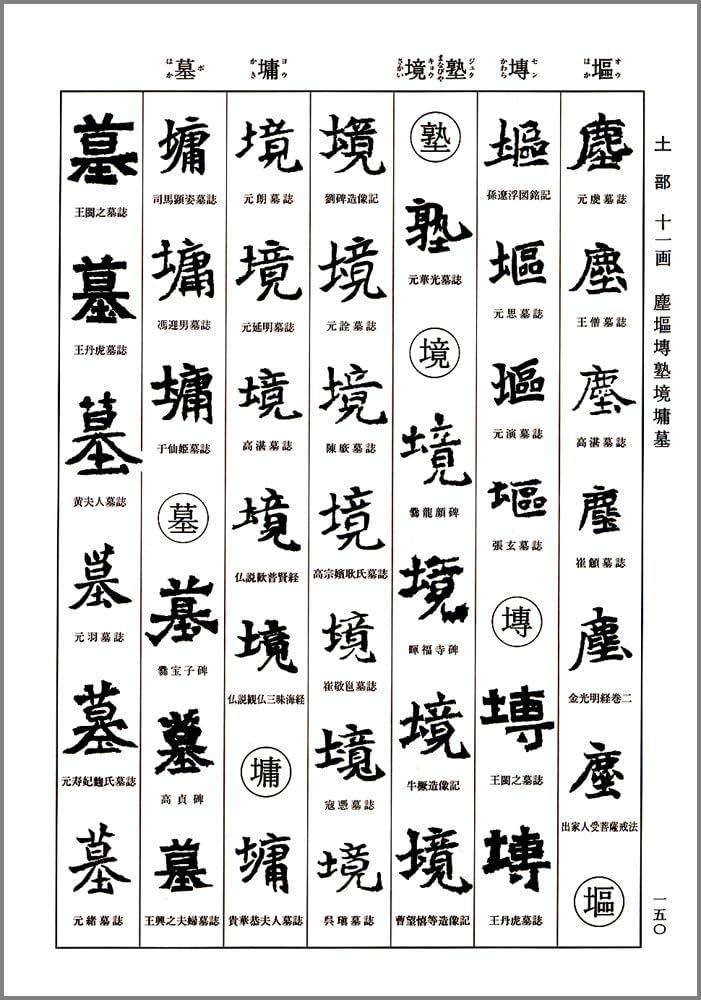 土部 十一画 塵塸塼塾境墉墓
一五〇
塸 オウ はか
塼 セン かわら
塾 ジュク まなびや
境 キョウ さかい
墉 ヨウ かき
墓 ボ はか
塵
元虔墓誌
塵
王僧墓誌
塵
高湛墓誌
塵
崔頠墓誌
塵
金光明経巻二
塵
出家人受菩薩戒法
塸
塸
孫遼浮図銘記
塸
元思墓誌
塸
元演墓誌
塸
張玄墓誌
塼
塼
王閩之墓誌
塼
王丹虎墓誌
塾
塾
元華光墓誌
境
境
爨龍顔碑
境
暉福寺碑
境
牛橛造像記
境
曹望憘等造像記
境
劉碑造像記
境
元詮墓誌
境
陳廞墓誌
境
高宗嬪耿氏墓誌
境
崔敬邕墓誌
境
寇憑墓誌
境
呉瑱墓誌
境
元朗墓誌
境
元延明墓誌
境
高湛墓誌
境
仏説歓普賢経
境
仏説観仏三昧海経
墉
墉
貴華恭夫人墓誌
墉
司馬顕姿墓誌
墉
馮迎男墓誌
墉
于仙姫墓誌
墓
墓
爨宝子碑
墓
高貞碑
墓
王興之夫婦墓誌
墓
王閩之墓誌
墓
王丹虎墓誌
墓
黄夫人墓誌
墓
元羽墓誌
墓
元寿妃麹氏墓誌
墓
元緒墓誌